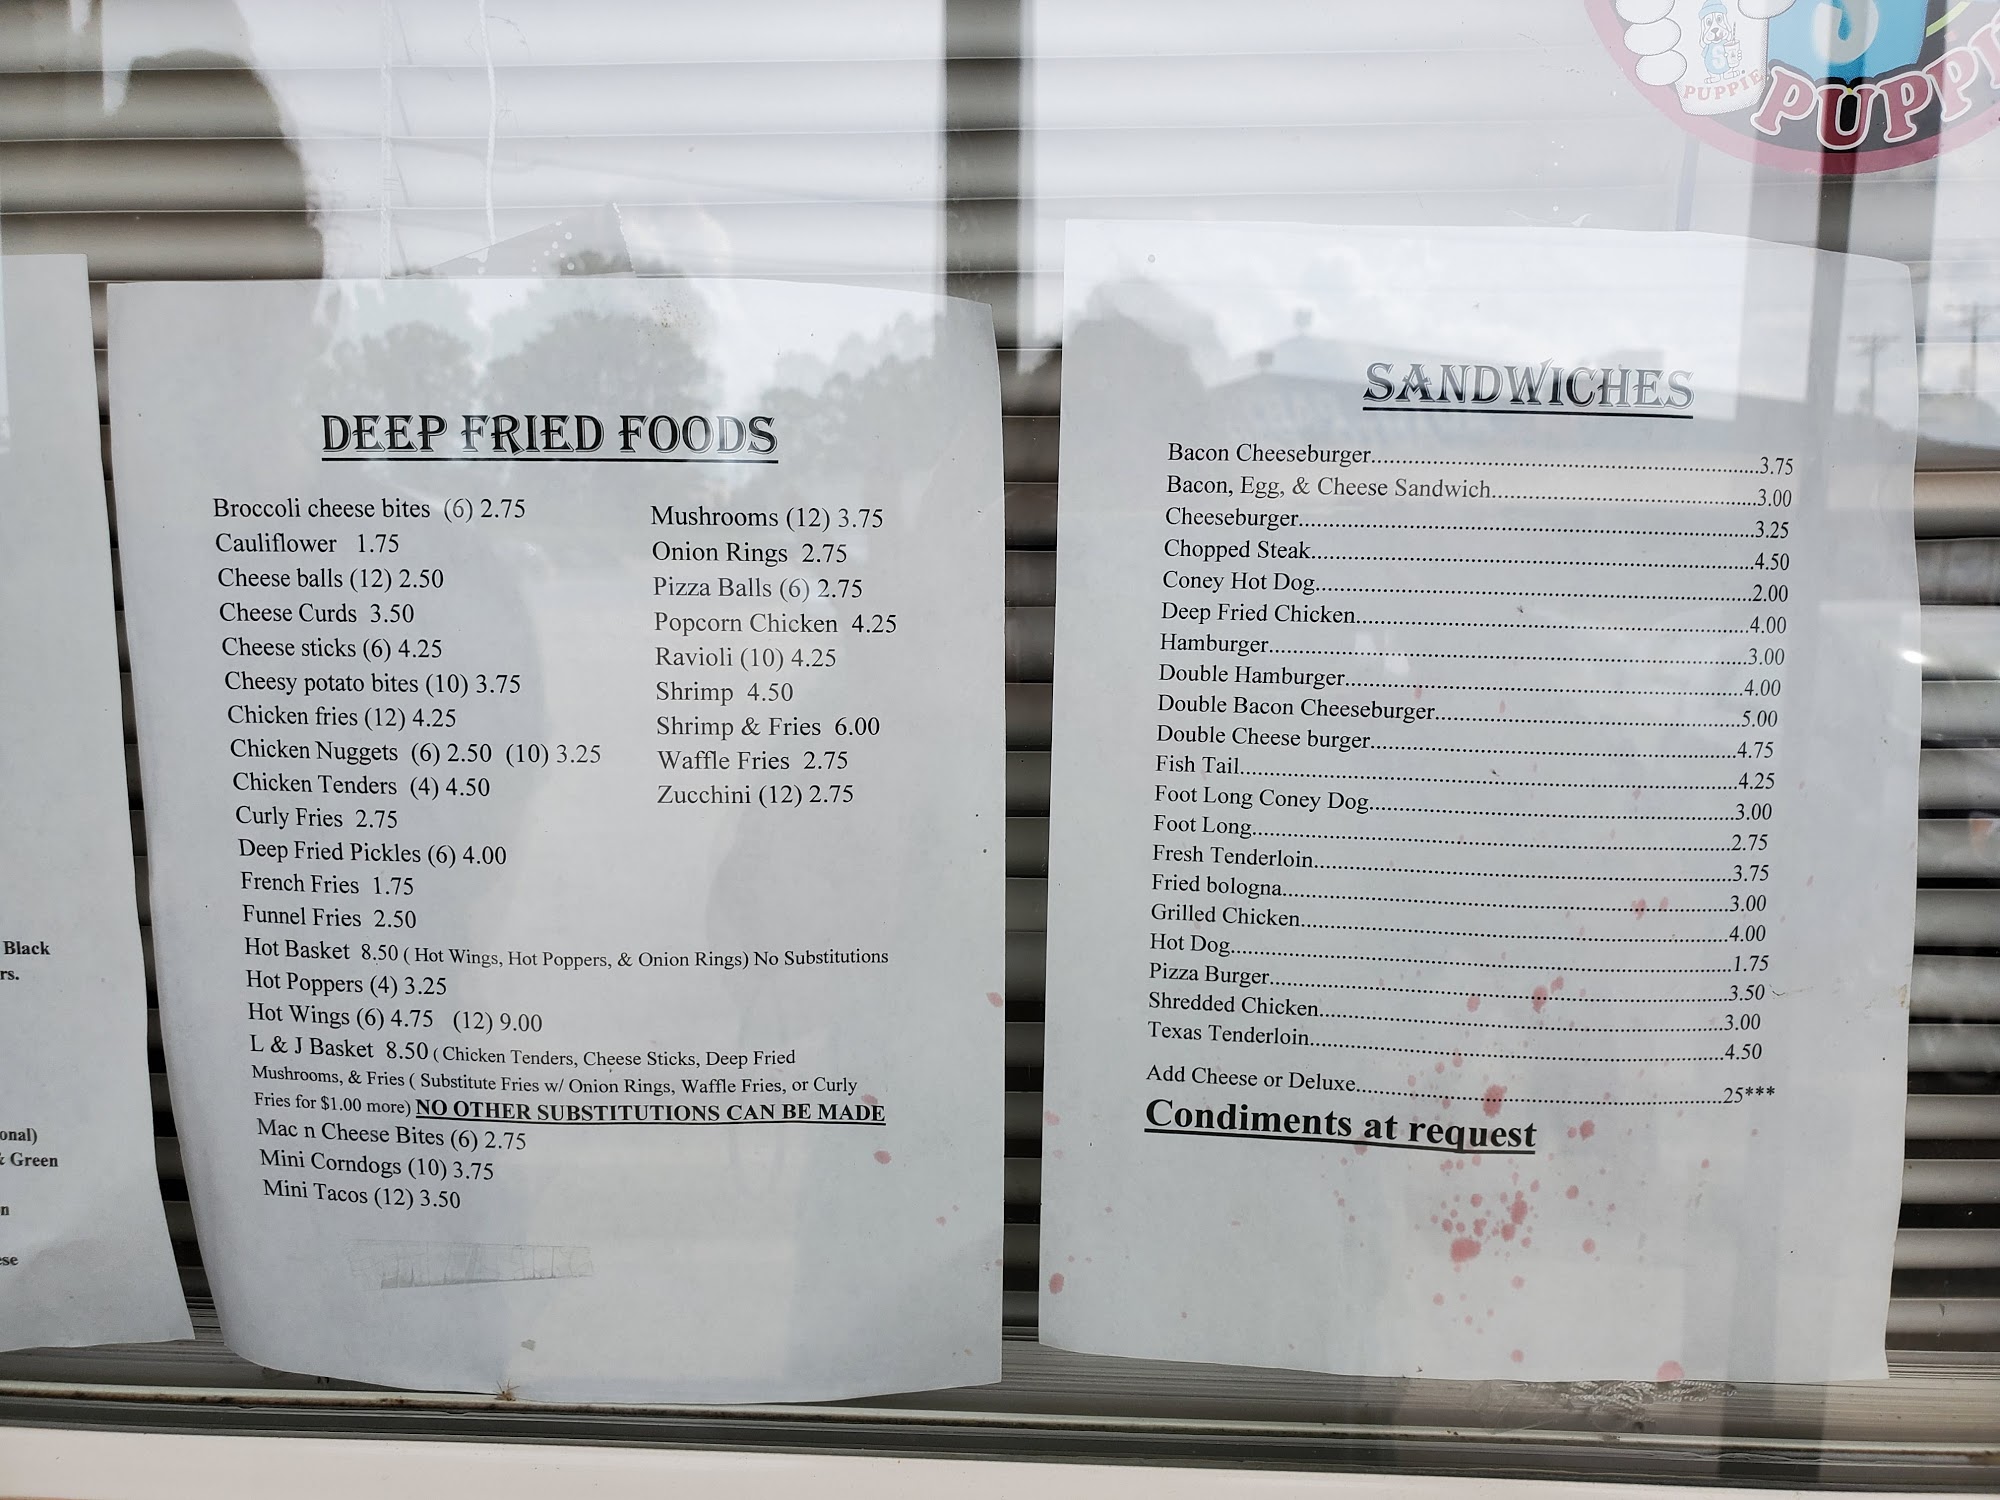 PUPPIE
PUPPI
Black
rs.
onal)
& Green
n
ese
DEEP FRIED FOODS
Broccoli cheese bites (6) 2.75
Cauliflower 1.75
Cheese balls (12) 2.50
Cheese Curds 3.50
Cheese sticks (6) 4.25
Cheesy potato bites (10) 3.75
Chicken fries (12) 4.25
Chicken Nuggets (6) 2.50 (10) 3.25
Chicken Tenders (4) 4.50
Curly Fries 2.75
Deep Fried Pickles (6) 4.00
French Fries 1.75
Funnel Fries 2.50
Hot Basket 8.50 ( Hot Wings, Hot Poppers, & Onion Rings) No Substitutions
Hot Poppers (4) 3.25
Hot Wings (6) 4.75 (12) 9.00
L & J Basket 8.50 ( Chicken Tenders, Cheese Sticks, Deep Fried
Mushrooms, & Fries ( Substitute Fries w/ Onion Rings, Waffle Fries, or Curly
Fries for $1.00 more) NO OTHER SUBSTITUTIONS CAN BE MADE
Mac n Cheese Bites (6) 2.75
Mini Corndogs (10) 3.75
Mini Tacos (12) 3.50
Mushrooms (12) 3.75
Onion Rings 2.75
Pizza Balls (6) 2.75
Popcorn Chicken 4.25
Ravioli (10) 4.25
Shrimp 4.50
Shrimp & Fries 6.00
Waffle Fries 2.75
Zucchini (12) 2.75
SANDWICHES
Bacon Cheeseburger...3.75
Bacon, Egg, & Cheese Sandwich...3.00
Cheeseburger...3.25
Chopped Steak...4.50
Coney Hot Dog...2.00
Deep Fried Chicken...4.00
Hamburger...3.00
Double Hamburger...4.00
Double Bacon Cheeseburger...5.00
Double Cheese burger...4.75
Fish Tail...4.25
Foot Long Coney Dog...3.00
Foot Long...2.75
Fresh Tenderloin...3.75
Fried bologna...3.00
Grilled Chicken...4.00
Hot Dog...1.75
Pizza Burger...3.50
Shredded Chicken...3.00
Texas Tenderloin...4.50
Add Cheese or Deluxe....25***
Condiments at request